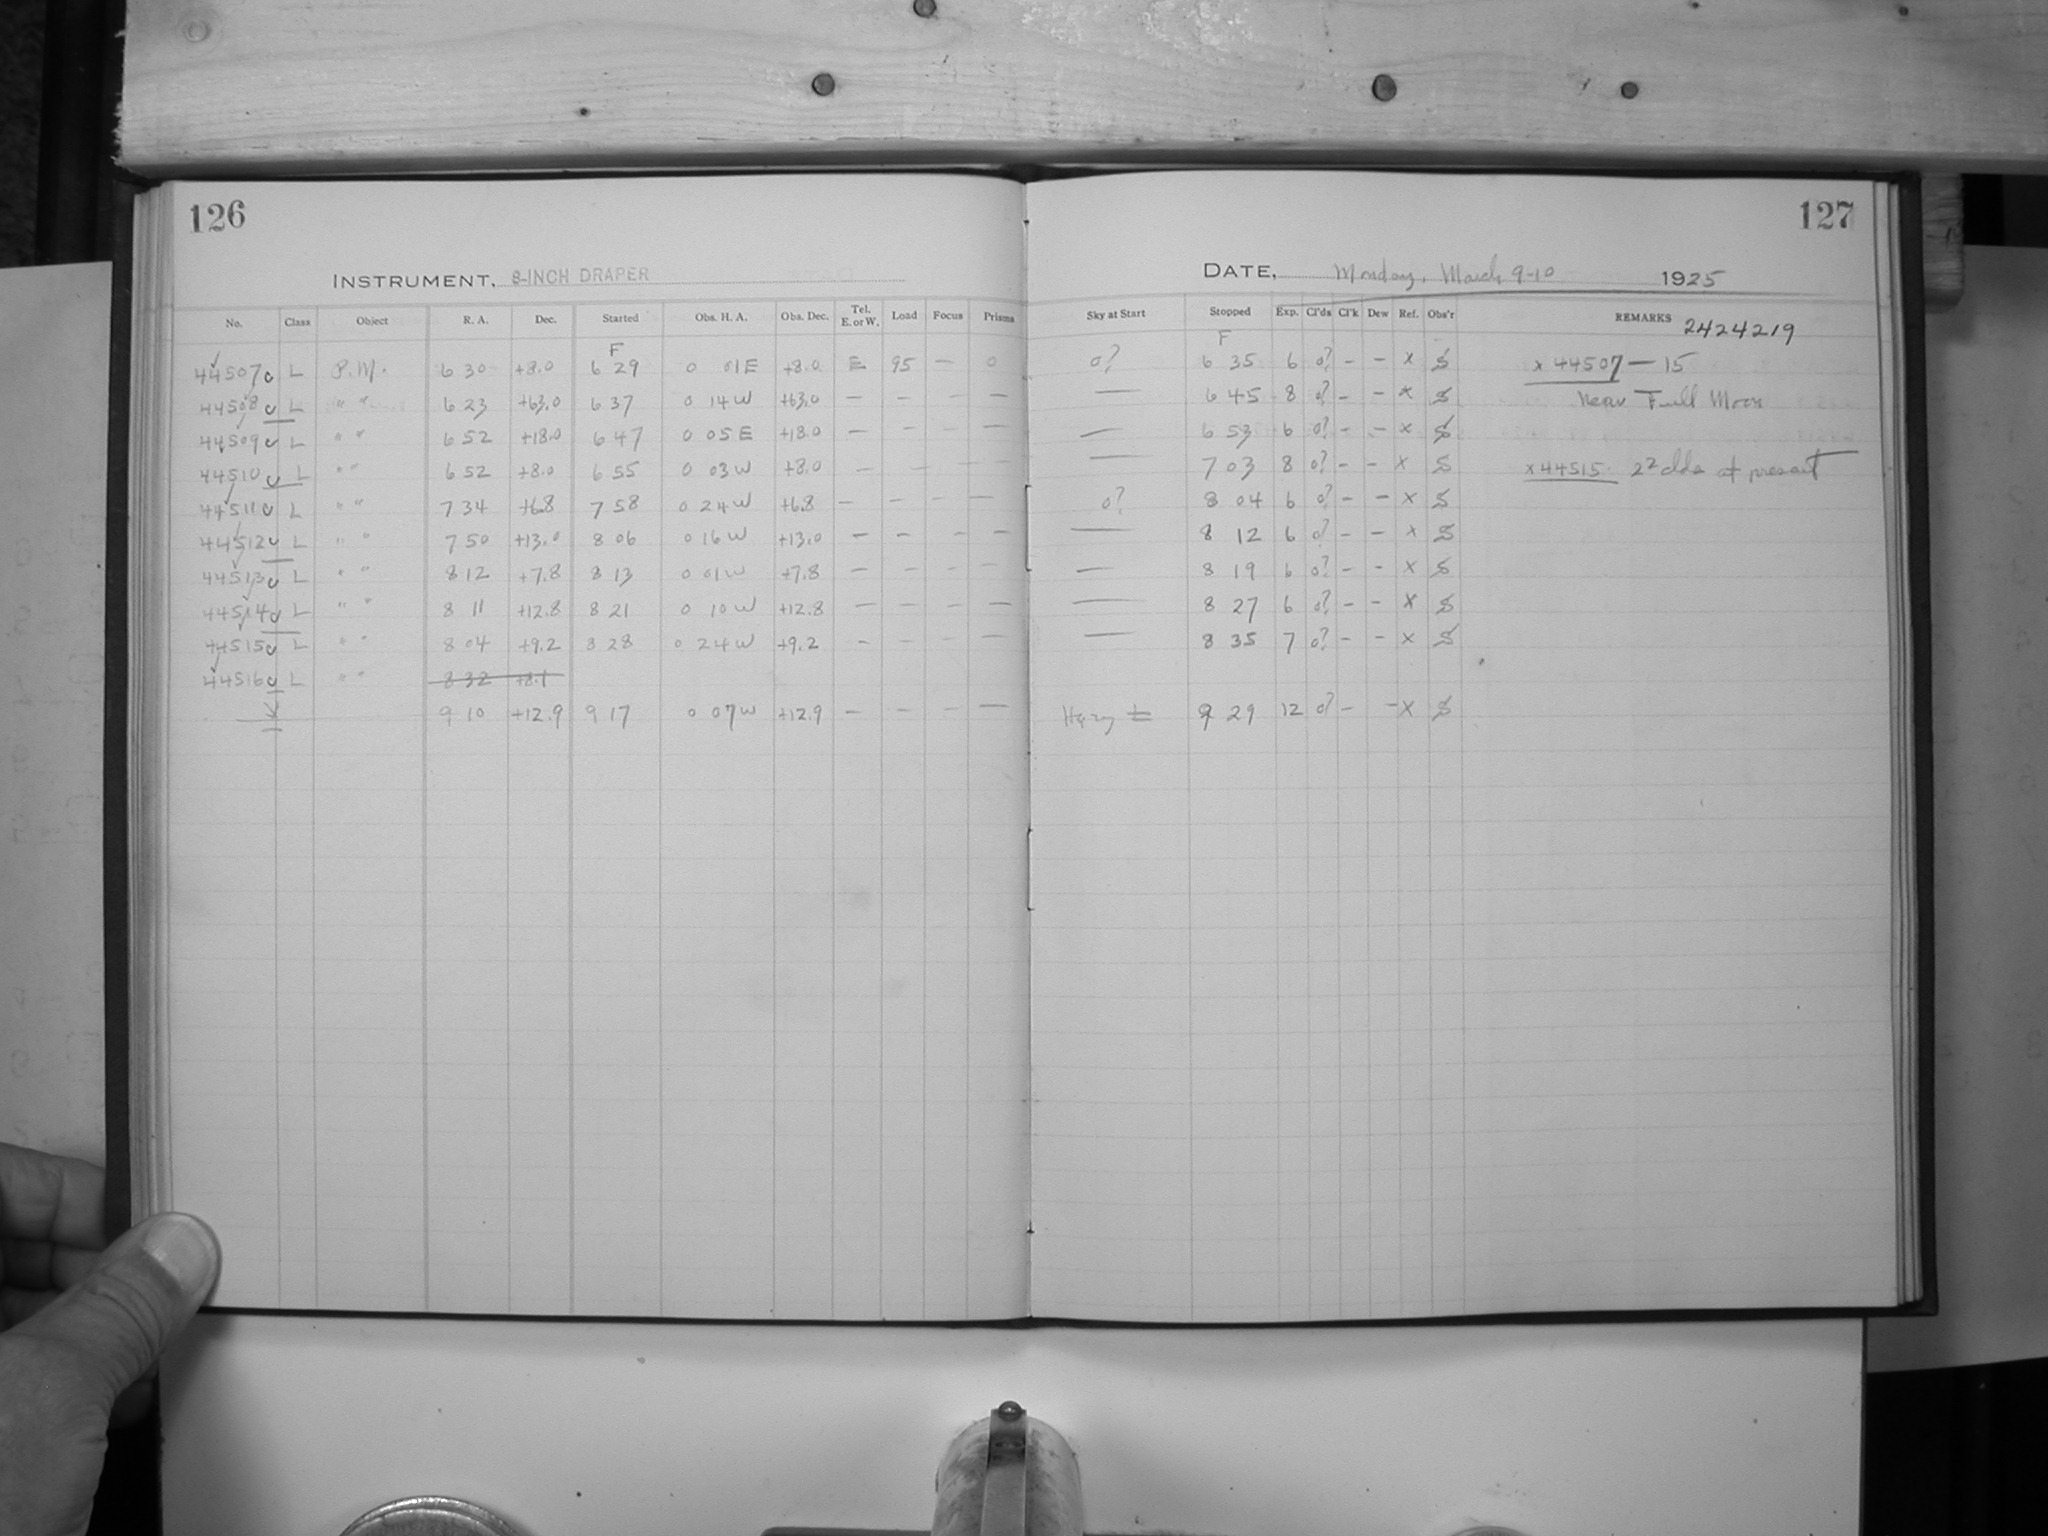 126
127
INSTRUMENT, 8-INCH DRAPER
DATE, Monday, March 9-10 1925
No. Class Object R. A. Dec. Started Obs. H. A. Obs. Dec. Tel. E. or W. Load Focus Prisms Sky at Start Stopped Exp. Cl'ds Cl'k Dew Ref. Obs'r REMARKS 2424219
F F
44507 L P.M. 6 30 +8.0 6 29 0 01 E +8.0 E 95 — 0 0? 6 35 6 0? – – x S x 44507 — 15
44508 L " " 6 23 +63.0 6 37 0 14 W +63.0 — — — — — 6 45 8 0? – – x S near Full Moon
44509 L " " 6 52 +18.0 6 47 0 05 E +18.0 — — — — — 6 53 6 0? – – x S
44510 L " " 6 52 +8.0 6 55 0 03 W +8.0 — — — — — 7 03 8 0? – – x S x 44515 2² clds at present
44511 L " " 7 34 +6.8 7 58 0 24 W +6.8 — — — — 0? 8 04 6 0? – – x S
44512 L " " 7 50 +13.0 8 06 0 16 W +13.0 — — — — — 8 12 6 0? – – x S
44513 L " " 8 12 +7.8 8 13 0 01 W +7.8 — — — — — 8 19 6 0? – – x S
44514 L " " 8 11 +12.8 8 21 0 10 W +12.8 — — — — — 8 27 6 0? – – x S
44515 L " " 8 04 +9.2 8 28 0 24 W +9.2 — — — — — 8 35 7 0? – – x S
44516 L " " 8 32 +8.1
9 10 +12.9 9 17 0 07 W +12.9 — — — — Hazy 9 29 12 0? – – x S